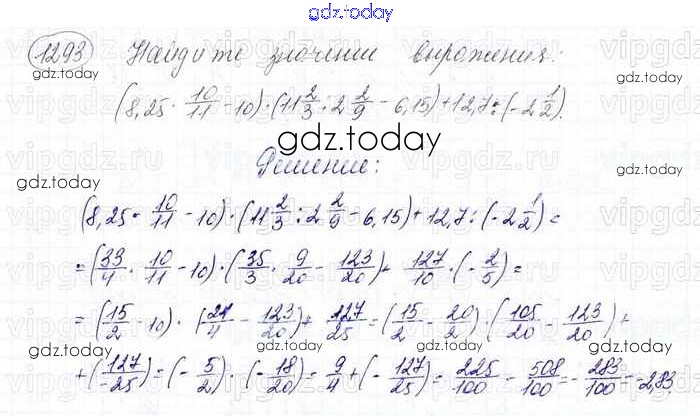 gdz.today
1293 Найдите значение выражения:
(8,25 · 10/11 - 10) · (11 2/3 : 2 2/9 - 6,15) + 12,7 : (-2 1/2).
gdz.today
Решение:
gdz.today
(8,25 · 10/11 - 10) · (11 2/3 : 2 2/9 - 6,15) + 12,7 : (-2 1/2) =
= (33/4 · 10/11 - 10) · (35/3 · 9/20 - 123/20) + 127/10 · (-2/5) =
= (15/2 - 10) · (21/4 - 123/20) + 127/25 = (15/2 - 20/2) · (105/20 - 123/20) +
+ (127/-25) = (-5/2) · (-18/20) = 9/4 + (-127/25) = 225/100 - 508/100 = -283/100 = -2,83.
gdz.today